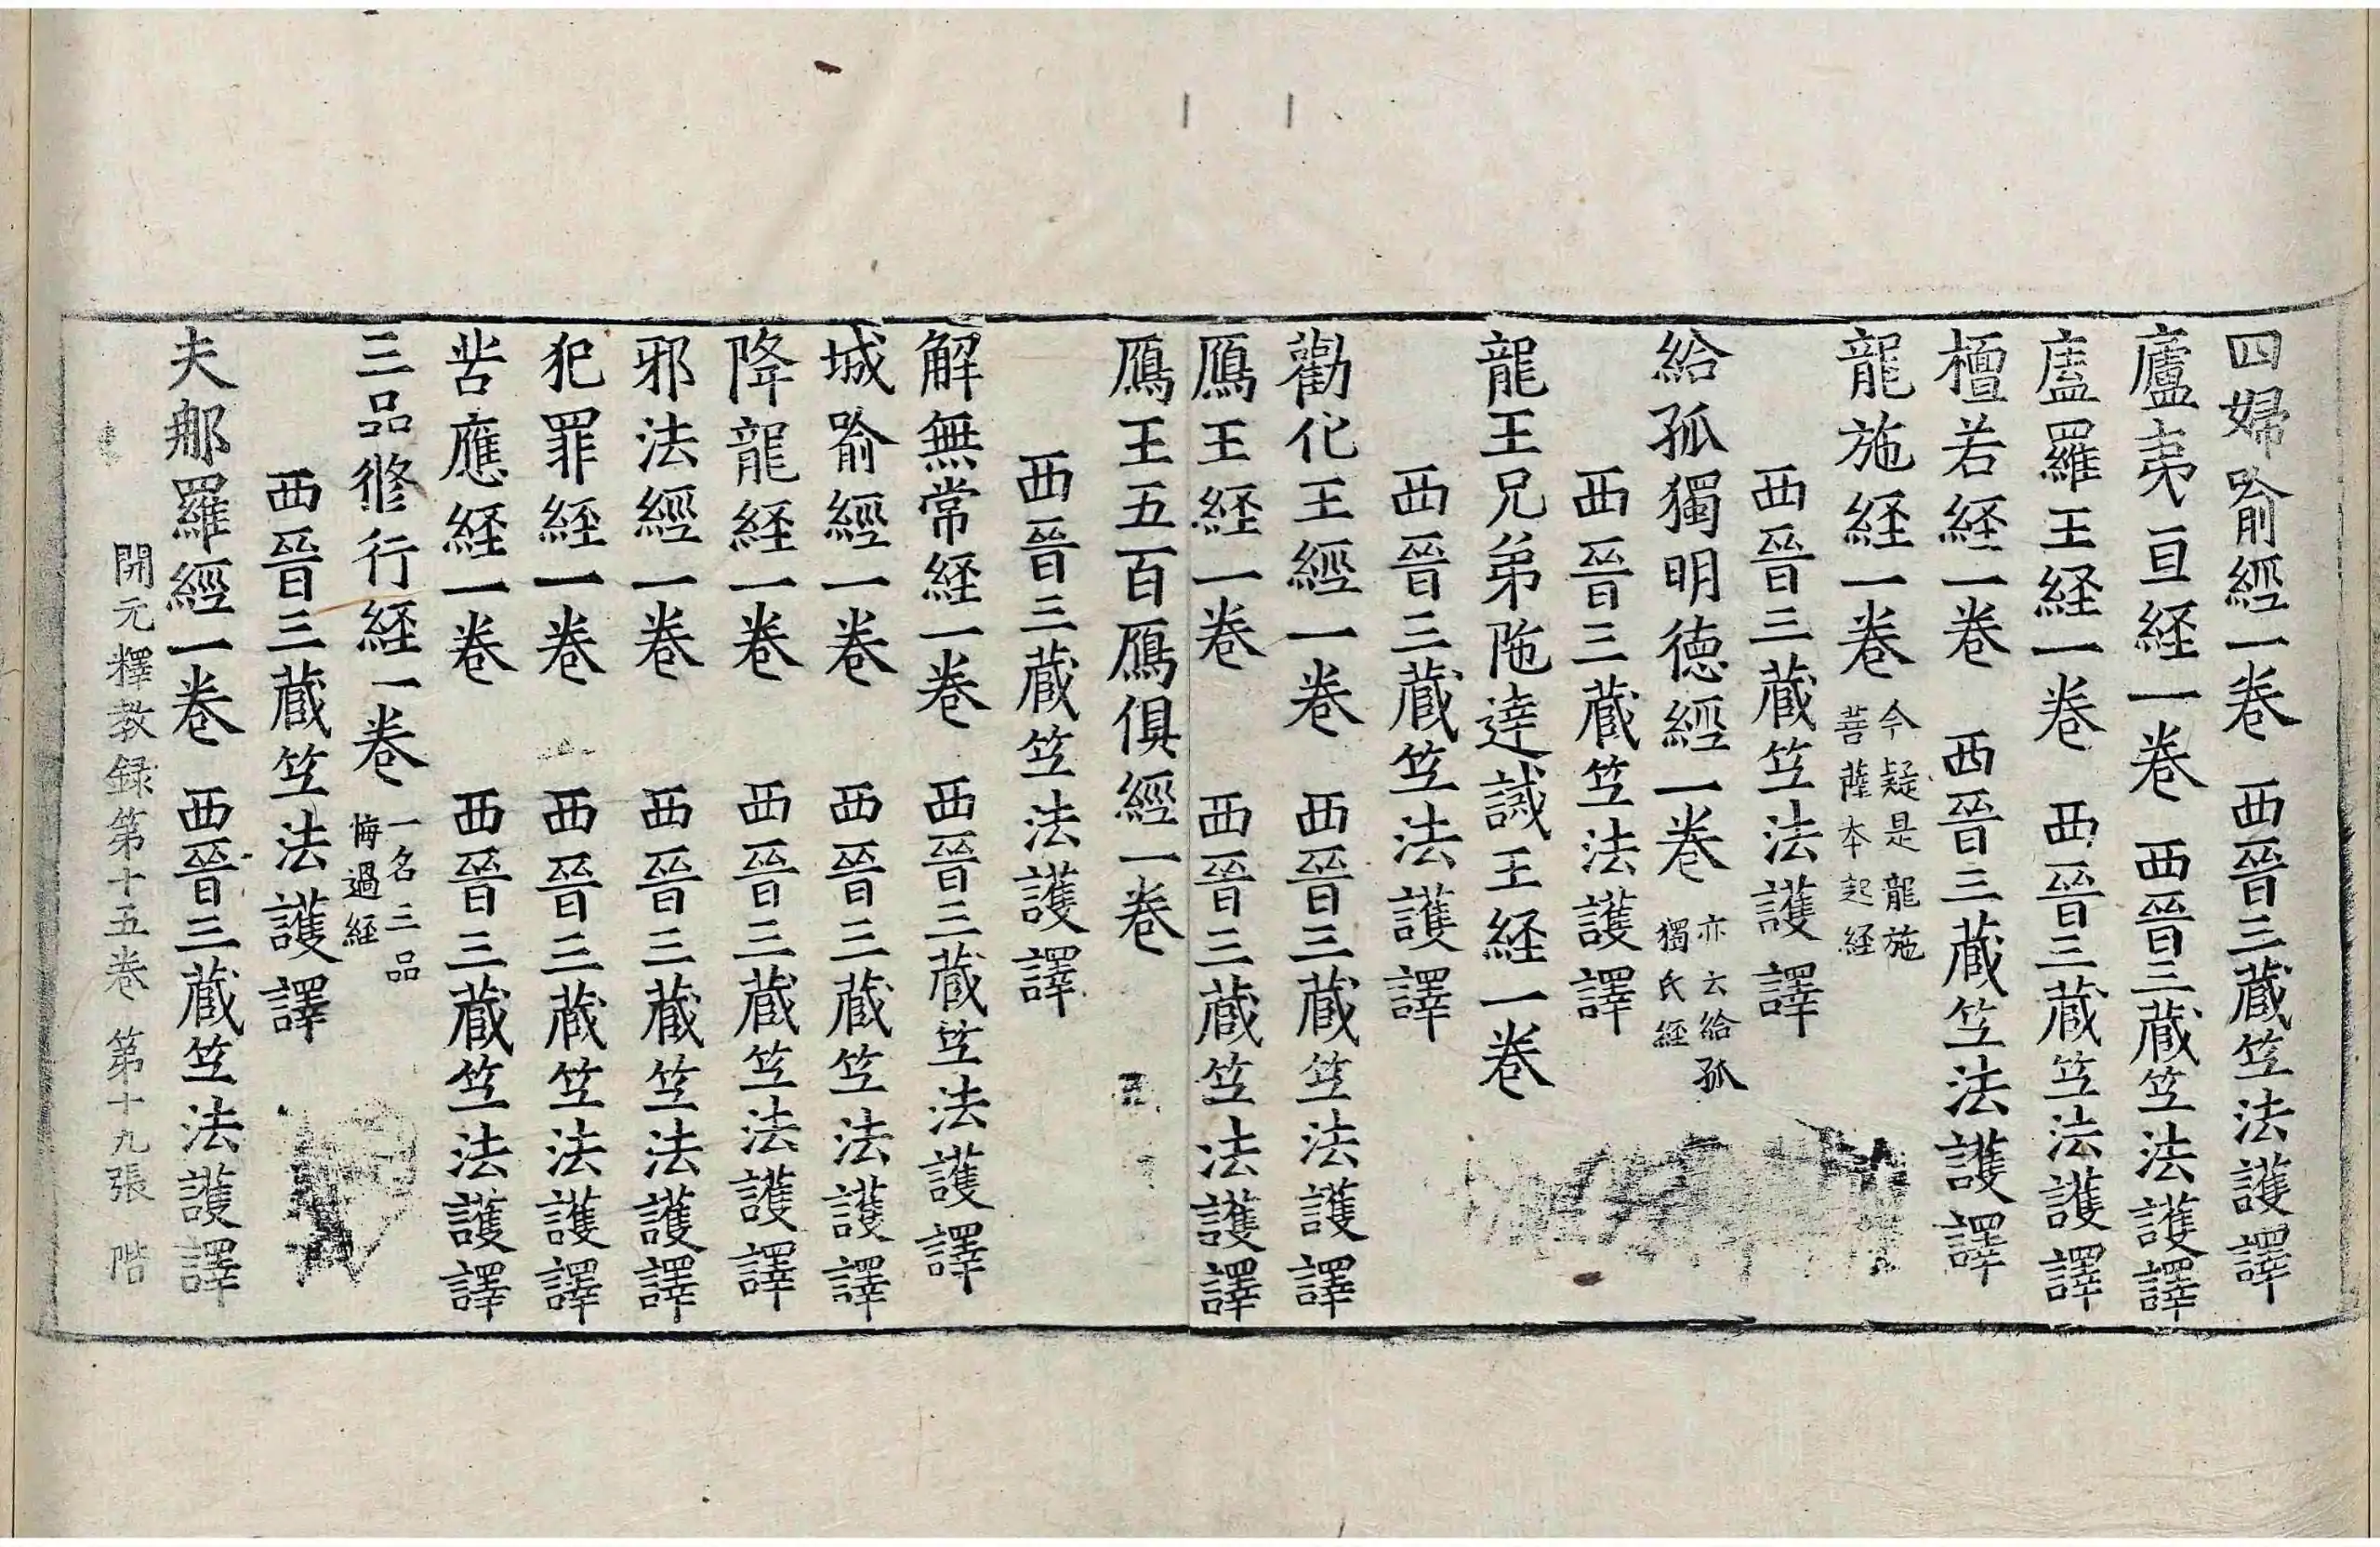 四婦喻經一卷 西晉三藏竺法護譯
廬夷亘経一卷 西晉三蔵竺法護譯
廅羅王経一卷 西晉三蔵竺法護譯
檀若経一卷 西晉三蔵竺法護譯
龍施経一卷 今疑是龍施菩薩本起経
西晉三蔵竺法護譯
給孤獨明德經一卷 亦云給孤獨氏經
西晉三蔵竺法護譯
龍王兄弟陁達誡王経一卷
西晉三蔵竺法護譯
勸化王經一卷 西晉三蔵竺法護譯
鴈王経一卷 西晉三蔵竺法護譯
鴈王五百鴈俱經一卷
西晉三蔵竺法護譯
解無常経一卷 西晉三蔵竺法護譯
城喻經一卷 西晉三蔵竺法護譯
降龍経一卷 西晉三蔵竺法護譯
邪法經一卷 西晉三蔵竺法護譯
犯罪経一卷 西晉三蔵竺法護譯
苦應経一卷 西晉三蔵竺法護譯
三品修行経一卷 一名三品悔過経
西晉三蔵竺法護譯
夫那羅經一卷 西晉三蔵竺法護譯
開元釋教録第十五卷 第十九張 階